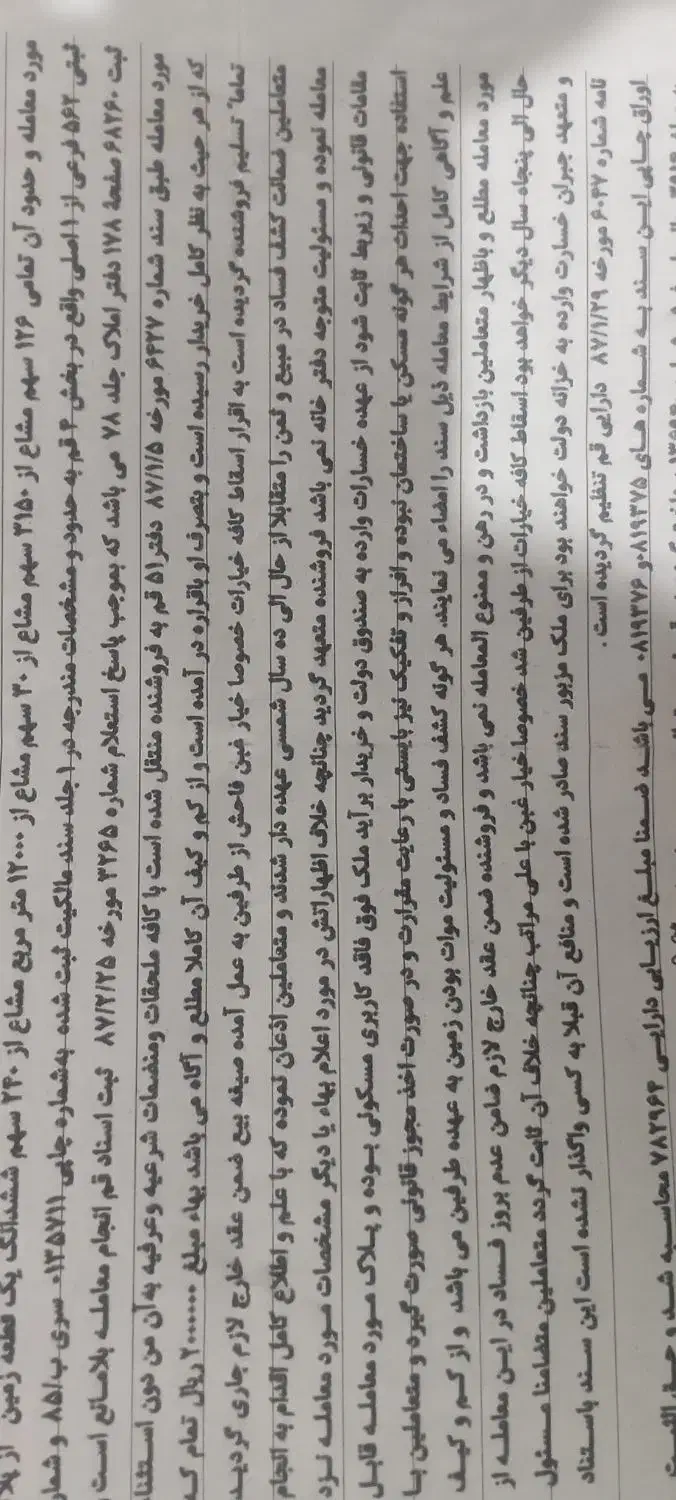 مورد معامله و حدود آن تمامی ۱۲۶ سهم مشاع از ۳۱۵۰ سهم مشاع از ۳۰ سهم مشاع از ۱۲۰۰۰ متر مربع مشاع از ۲۴۰ سهم ششدانگ یک قطعه زمین از پلا
ثبتی ۵۶۲ فرعی از ۱ اصلی واقع در بخش ۴ قم به حدود و مشخصات مندرجه در ۱ جلد سند مالکیت ثبت شده به شماره چاپی ۰۱۳۵۷۱۱ سری ب/۸۵ و شمار
ثبت ۶۸۲۶۰ صفحه ۱۷۸ دفتر املاک جلد ۷۸ می باشد که بموجب پاسخ استعلام شماره ۳۲۶۵ مورخه ۸۷/۲/۲۵ ثبت اسناد قم انجام معامله بلامانع است
مورد معامله طبق سند شماره ۶۴۲۷ مورخه ۸۷/۱/۵ دفتر ۵۱ قم به فروشنده منتقل شده است با کافه ملحقات ومنضمات شرعیه وعرفیه به آن من دون استثنا
که از هر حیث به نظر کامل خریدار رسیده است و بتصرف او باقراره در آمده است و از کم و کیف آن کاملا مطلع و آگاه می باشد بهاء مبلغ ۲۰۰۰۰۰۰ ریال تمام که
تماما" تسلیم فروشنده گردیده است به اقرار اسقاط کافه خیارات خصوصا خیار غبن فاحش از طرفین به عمل آمده صیغه بیع ضمن عقد خارج لازم جاری گردید
متعاملین ضمانت کشف فساد در مبیع و ثمن را متقابلا از حال الی ده سال شمسی عهده دار شدند و متعاملین اذعان نموده که با علم و اطلاع کامل اقدام به انجام
معامله نموده و مسئولیت متوجه دفتر خانه نمی باشد فروشنده متعهد گردید چنانچه خلاف اظهاراتش در مورد اعلام بهاء یا دیگر مشخصات مورد معامله نزد
مقامات قانونی و زیربط ثابت شود از عهده خسارات وارده به صندوق دولت و خریدار برآید ملک فوق فاقد کاربری مسکونی بوده و پلاک مورد معامله قابل
استفاده جهت احداث هر گونه مسکن یا ساختمان نبوده و افراز و تفکیک نیز بایستی با رعایت مقرارت و در صورت اخذ مجوز قانونی صورت گیرد و متعاملین با
علم و آگاهی کامل از شرایط معامله ذیل سند را امضاء می نمایند. هر گونه کشف فساد و مسئولیت موات بودن زمین به عهده طرفین می باشد و از کم و کیف
مورد معامله مطلع و باظهار متعاملین بازداشت و در رهن و ممنوع المعامله نمی باشد و فروشنده ضمن عقد خارج لازم ضامن عدم بروز فساد در این معامله از
حال الی پنجاه سال دیگر خواهد بود اسقاط کافه خیارات از طرفین شد خصوصا خیار غبن با علی مراتب چنانچه خلاف آن ثابت گردد متعاملین متضامنا مسئول
و متعهد جبران خسارت وارده به خزانه دولت خواهند بود برای ملک مزبور سند صادر شده است و منافع آن قبلا به کسی واگذار نشده است این سند باستناد
نامه شماره ۶۰۴۷ مورخه ۸۷/۱/۲۹ دارایی قم تنظیم گردیده است .
اوراق چاپی این سند به شماره های ۰۸۱۹۳۷۵ و ۰۸۱۹۳۷۶ می باشد ضمنا مبلغ ارزیابی دارایی ۷۸۲۹۶۴ محاسبه شد و حق الثبت